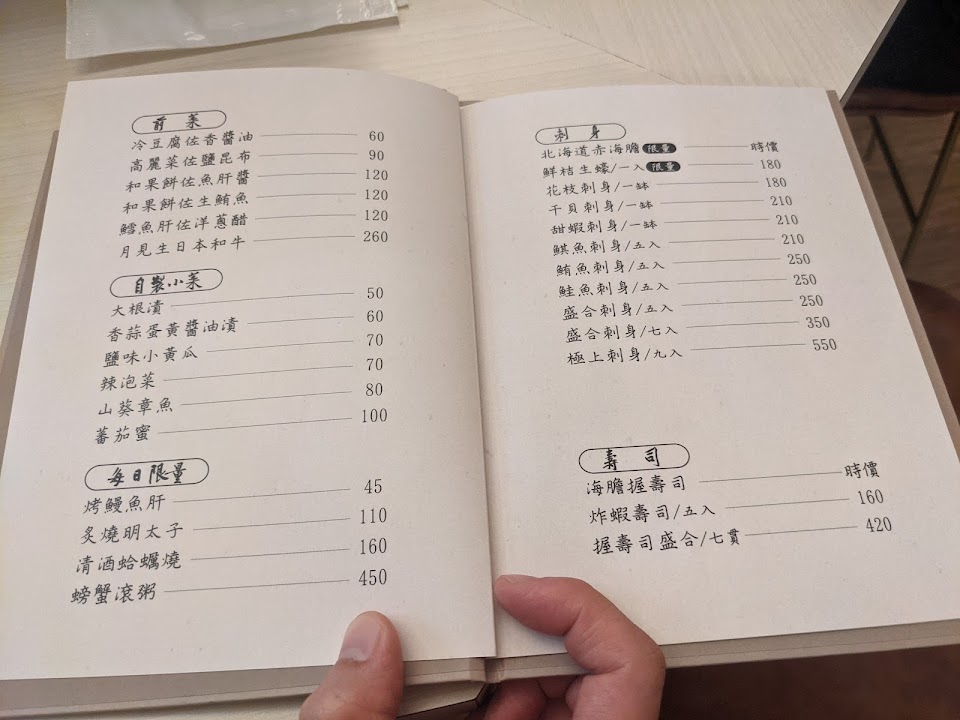 前菜
冷豆腐佐香醬油 60
高麗菜佐鹽昆布 90
和果餅佐魚肝醬 120
和果餅佐生鮪魚 120
鱈魚肝佐洋蔥醋 120
月見生日本和牛 260
自製小菜
大根漬 50
香蒜蛋黃醬油漬 60
鹽味小黃瓜 70
辣泡菜 70
山葵章魚 80
蕃茄蜜 100
每日限量
烤鰻魚肝 45
炙燒明太子 110
清酒蛤蠣燒 160
螃蟹滾粥 450
刺身
北海道赤海膽 限量 時價
鮮桔生蠔/一入 限量 180
花枝刺身/一缽 180
干貝刺身/一缽 210
甜蝦刺身/一缽 210
鯕魚刺身/五入 210
鮪魚刺身/五入 250
鮭魚刺身/五入 250
盛合刺身/五入 250
盛合刺身/七入 350
極上刺身/九入 550
壽司
海膽握壽司 時價
炸蝦壽司/五入 160
握壽司盛合/七貫 420